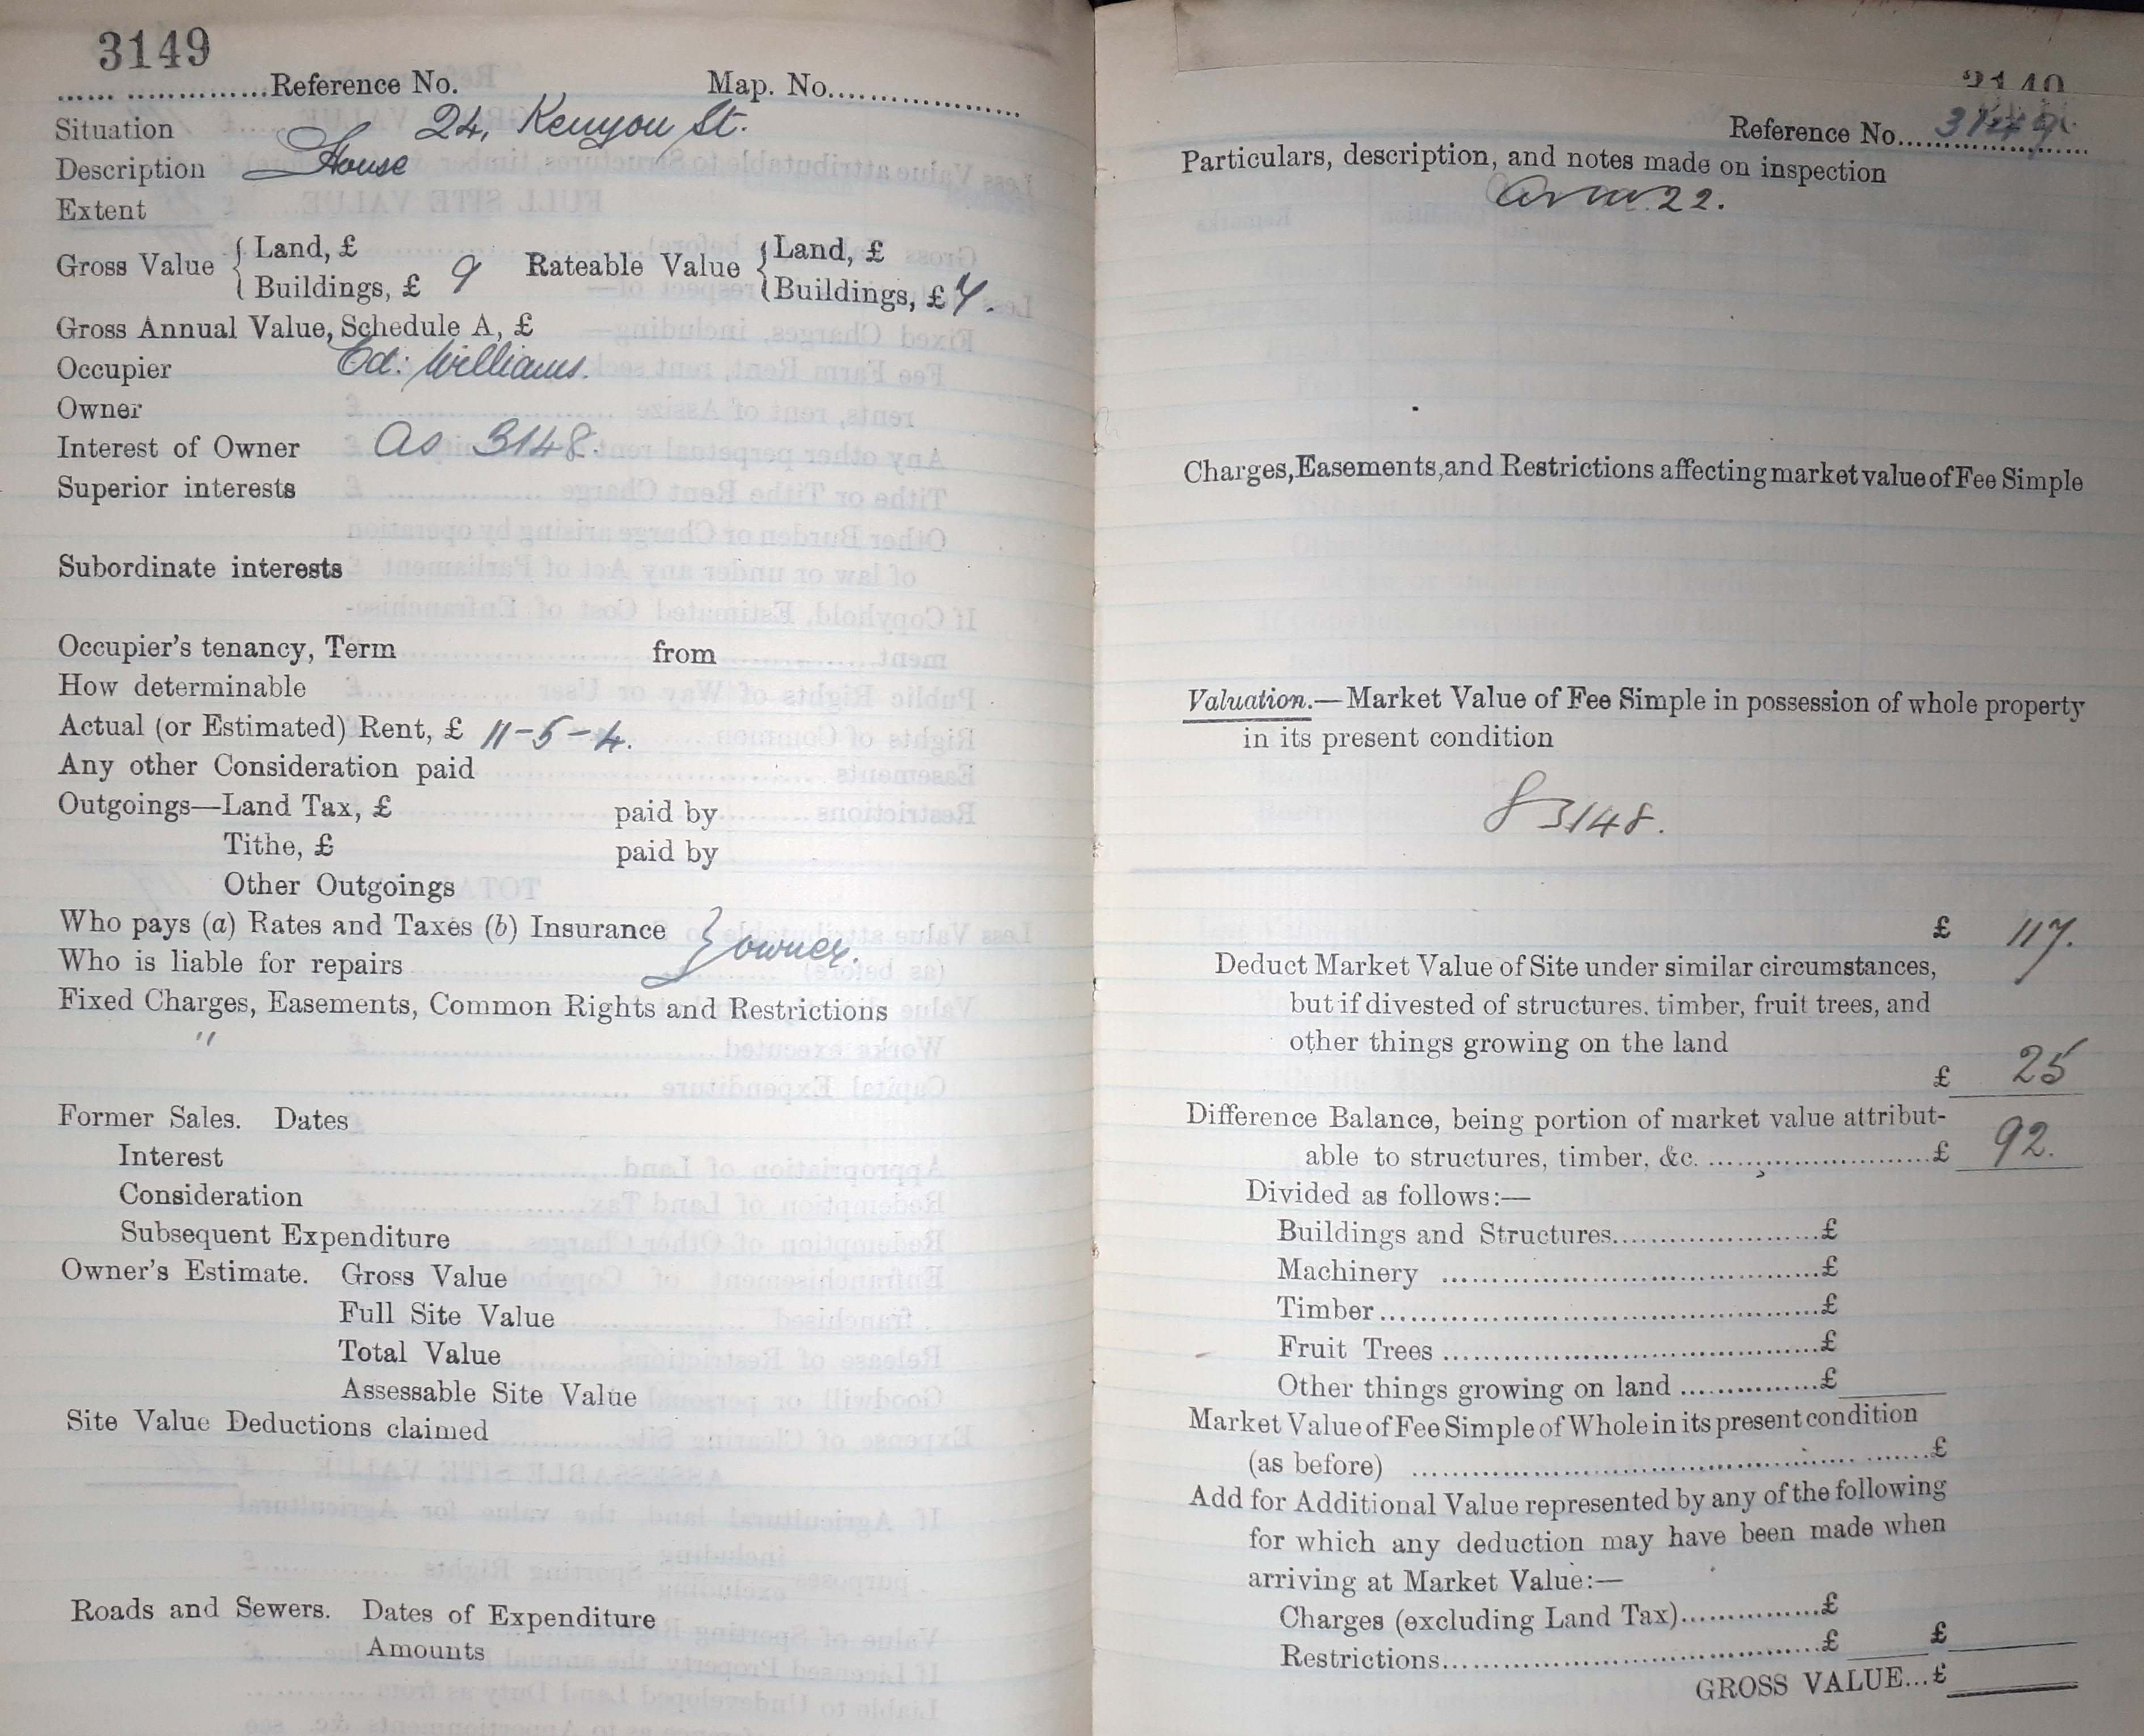 3149
...... ...............Reference No. Map. No....................
Situation 24, Kenyon St.
Description House
Extent
Gross Value { Land, £ Rateable Value { Land, £
Buildings, £ 9 Buildings, £ 7.
Gross Annual Value, Schedule A, £
Occupier Ed: Williams.
Owner
Interest of Owner As 3148.
Superior interests
Subordinate interests
Occupier's tenancy, Term from
How determinable
Actual (or Estimated) Rent, £ 11-5-4.
Any other Consideration paid
Outgoings—Land Tax, £ paid by
Tithe, £ paid by
Other Outgoings
Who pays (a) Rates and Taxes (b) Insurance } owner.
Who is liable for repairs
Fixed Charges, Easements, Common Rights and Restrictions
"
Former Sales. Dates
Interest
Consideration
Subsequent Expenditure
Owner's Estimate. Gross Value
Full Site Value
Total Value
Assessable Site Value
Site Value Deductions claimed
Roads and Sewers. Dates of Expenditure
Amounts
3149
Reference No. 3149
Particulars, description, and notes made on inspection
22.
Charges, Easements, and Restrictions affecting market value of Fee Simple
Valuation.—Market Value of Fee Simple in possession of whole property
in its present condition
3148.
£ 117.
Deduct Market Value of Site under similar circumstances,
but if divested of structures, timber, fruit trees, and
other things growing on the land
£ 25
Difference Balance, being portion of market value attribut-
able to structures, timber, &c. ..........................£ 92.
Divided as follows:—
Buildings and Structures.....................£
Machinery .......................................£
Timber.............................................£
Fruit Trees .......................................£
Other things growing on land ..............£
Market Value of Fee Simple of Whole in its present condition
(as before) ...................................................£
Add for Additional Value represented by any of the following
for which any deduction may have been made when
arriving at Market Value:—
Charges (excluding Land Tax)..............£
Restrictions.......................................£ £
GROSS VALUE...£